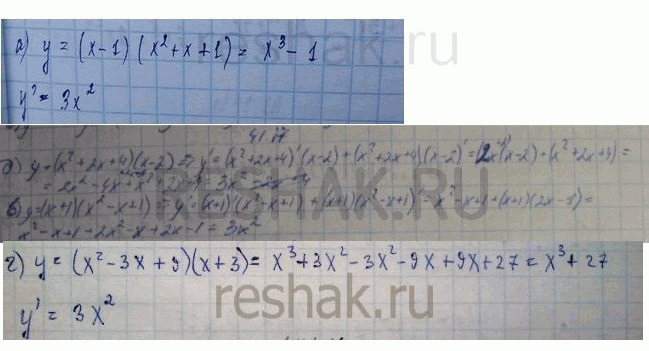 а) y = (x-1) (x²+x+1) = x³ - 1
y' = 3x²
reshak.ru
41.17
б) y=(x²+2x+4)(x-2) => y'=(x²+2x+4)'(x-2)+(x²+2x+4)(x-2)' = (x-2)+(x²+2x+4)=
3x²
в) y=(x+1)(x²-x+1) = y'=(x+1)'(x²-x+1)+(x+1)(x²-x+1)' = x²-x+1+(x+1)(2x-1)=
x²-x+1+2x²-x+2x-1=3x²
RESHAK.RU
г) y = (x²-3x+9)(x+3) = x³+3x²-3x²-9x+9x+27 = x³+27
y' = 3x²
reshak.ru